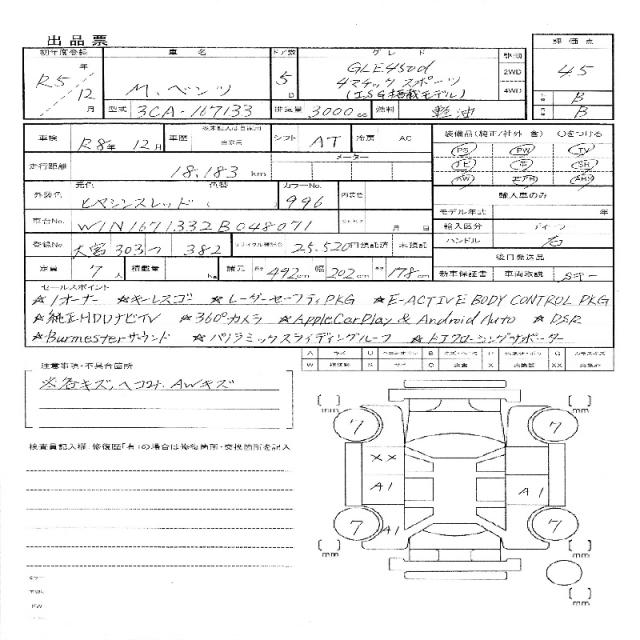 出品票
初年度登録 車名 ドア数 グレード 駆動 評価点
R5年 12月 M.ベンツ 5D GLE450d 4マチック スポーツ (ISG搭載モデル) 2WD 4WD 4.5
型式 3CA-167133 排気量 3000cc 燃料 軽油 B B
車検 R8年 12月 車歴 シフト AT 冷房 AC 装備品(純正/社外 含)〇をつける
走行距離 18,183 km メーター PS PW TV
外装色 元色 色替 カラーNo. 内装色 SR
ヒヤシンスレッド ( 996 AW エアB 輸入車のみ
車台No. W1N1671332B048071 月 日 モデル年式 年
登録No. 大宮 303つ 382 リサイクル預託金 25,520円 預託済 未預託 輸入区分 ディーラ
ハンドル 右
定員 7人 積載量 kg 諸元 長さ 492cm 幅 202cm 高 178cm 後日発送品
新車保証書 車両取説 Sキー
セールスポイント
★1オーナー ★キーレスゴー ★レーダーセーフティPKG ★E-ACTIVE BODY CONTROL PKG
★純正HDDナビTV ★360°カメラ ★AppleCarPlay & Android Auto ★DSR
★Burmesterサウンド ★パノラミックスライディングルーフ ★ドアクロージングサポーター
注意事項・不具合箇所
※各キズ、ヘコミ、AWキズ
検査員記入欄(修復歴「有」の場合は修復箇所・交換箇所を記入
mm mm
7 7
XX
A1 A1
7 A1 7
mm mm
mm